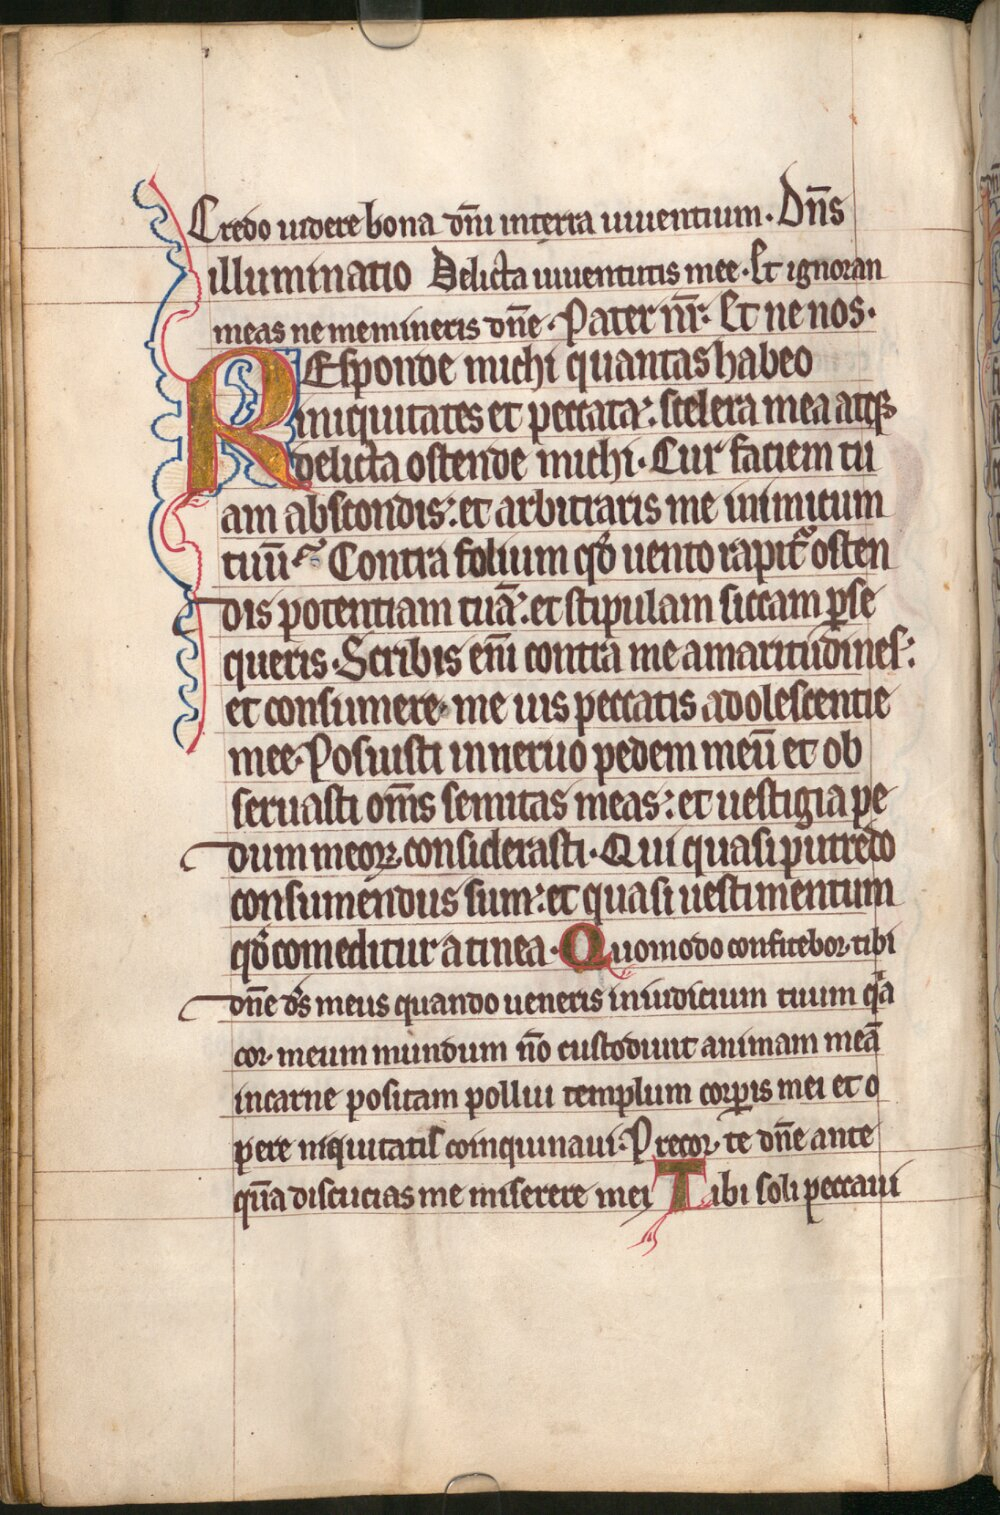 Credo uidere bona dn̄i in terra uiuentium. Dn̄s
illuminatio Delicta iuuentutis mee. Et ignoran
meas ne memineris dn̄e. Pater nr̄. Et ne nos.
REsponde michi quantas habeo
iniquitates et peccata: scelera mea atqꝫ
delicta ostende michi. Cur faciem tu
am abscondis: et arbitraris me inimicum
tuū Contra folium qd̄ uento rapit᷑ osten
dis potentiam tuā: et stipulam siccam ꝑse
queris. Scribis eni̅ contra me amaritudines:
et consumere me uis peccatis adolescentie
mee. Posuisti in neruo pedem meū et ob
seruasti om̄s semitas meas: et uestigia pe
dum meoꝝ considerasti. Qui quasi putredo
consumendus sum: et quasi uestimentum
qd̄ comeditur a tinea. Quomodo confitebor tibi
dn̄e ds̄ meus quando ueneris in iudicium tuum qͣa
cor meum mundum nō custodiuit animam meā
in carne positam pollui templum corꝑis mei et o
pere niquitatis coinquinaui. Precor te dn̄e ante
qūa discucias me miserere mei Tibi soli peccaui